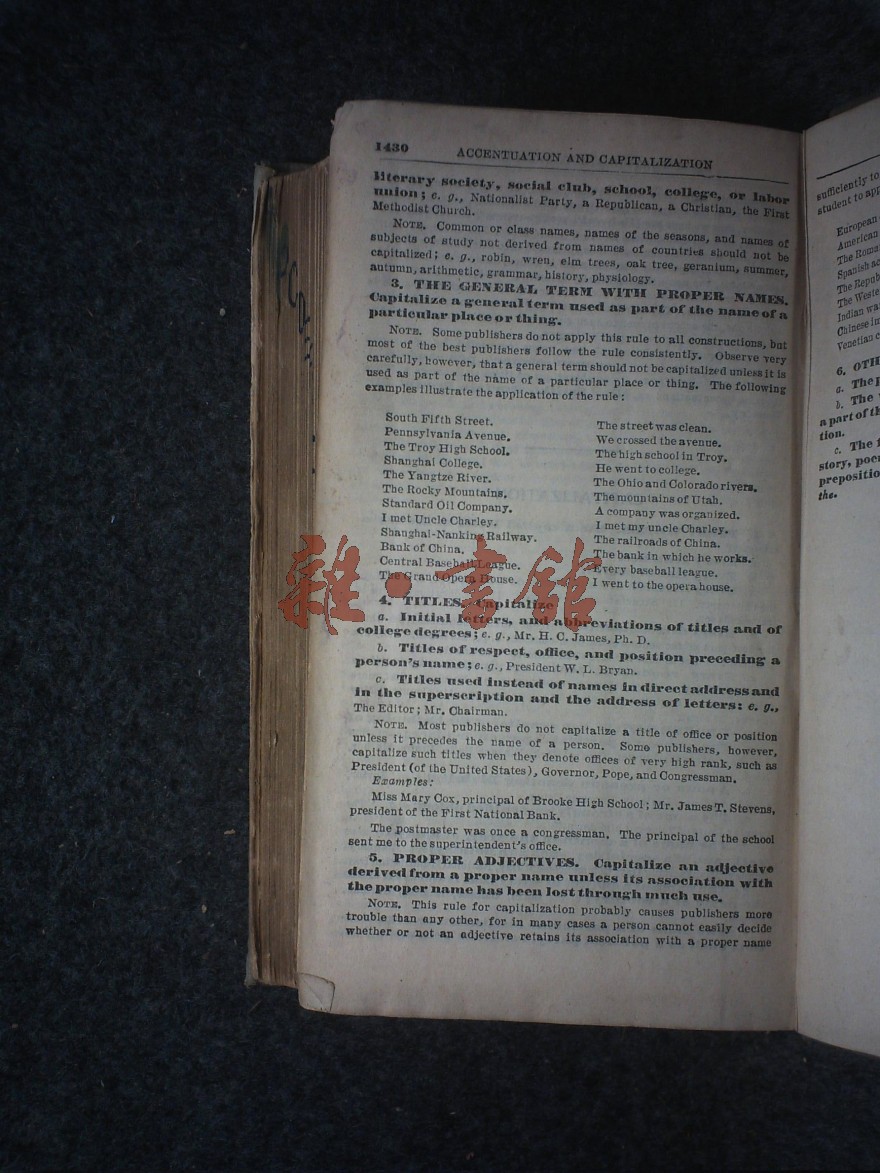 1430
ACCENTUATION AND CAPITALIZATION
literary society, social club, school, college, or labor
union; e. g., Nationalist Party, a Republican, a Christian, the First
Methodist Church.
NOTE. Common or class names, names of the seasons, and names of
subjects of study not derived from names of countries should not be
capitalized; e. g., robin, wren, elm trees, oak tree, geranium, summer,
autumn, arithmetic, grammar, history, physiology.
3. THE GENERAL TERM WITH PROPER NAMES.
Capitalize a general term used as part of the name of a
particular place or thing.
NOTE. Some publishers do not apply this rule to all constructions, but
most of the best publishers follow the rule consistently. Observe very
carefully, however, that a general term should not be capitalized unless it is
used as part of the name of a particular place or thing. The following
examples illustrate the application of the rule:
South Fifth Street.
Pennsylvania Avenue.
The Troy High School.
Shanghai College.
The Yangtze River.
The Rocky Mountains.
Standard Oil Company.
I met Uncle Charley.
Shanghai-Nanking Railway.
Bank of China.
Central Baseball League.
The Grand Opera House.
The street was clean.
We crossed the avenue.
The high school in Troy.
He went to college.
The Ohio and Colorado rivers.
The mountains of Utah.
A company was organized.
I met my uncle Charley.
The railroads of China.
The bank in which he works.
Every baseball league.
I went to the opera house.
雜·書館
4. TITLES. Capitalize
a. Initial letters, and abbreviations of titles and of
college degrees; e. g., Mr. H. C. James, Ph. D.
b. Titles of respect, office, and position preceding a
person's name; e. g., President W. L. Bryan.
c. Titles used instead of names in direct address and
in the superscription and the address of letters: e. g.,
The Editor; Mr. Chairman.
NOTE. Most publishers do not capitalize a title of office or position
unless it precedes the name of a person. Some publishers, however,
capitalize such titles when they denote offices of very high rank, such as
President (of the United States), Governor, Pope, and Congressman.
Examples:
Miss Mary Cox, principal of Brooke High School; Mr. James T. Stevens,
president of the First National Bank.
The postmaster was once a congressman. The principal of the school
sent me to the superintendent's office.
5. PROPER ADJECTIVES. Capitalize an adjective
derived from a proper name unless its association with
the proper name has been lost through much use.
NOTE. This rule for capitalization probably causes publishers more
trouble than any other, for in many cases a person cannot easily decide
whether or not an adjective retains its association with a proper name
sufficiently to
student to
European
American
The
Spanish
The
The
Indian
Chinese
Venetian
6.
a. The
b. The
a part of
tion.
c. The
story,
the.